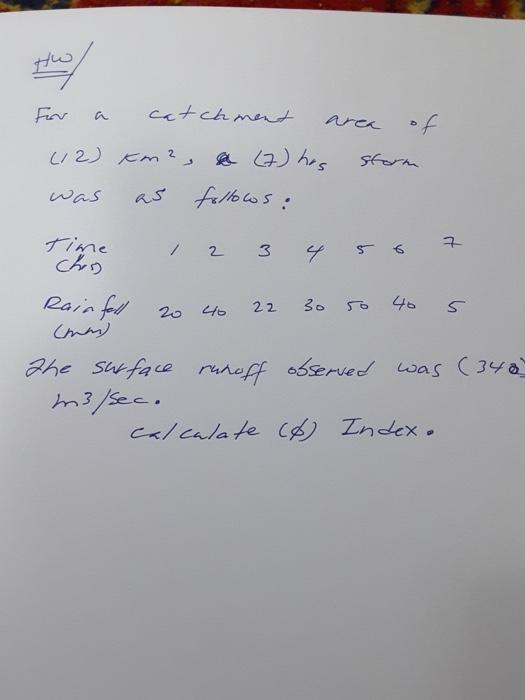 HW/
For a catchment area of
(12) Km², (7) hrs storm
was as follows:
Time 1 2 3 4 5 6 7
(hrs)
Rainfall 20 40 22 30 50 40 5
(mm)
The surface runoff observed was (340)
m3/sec.
calculate (ϕ) Index.